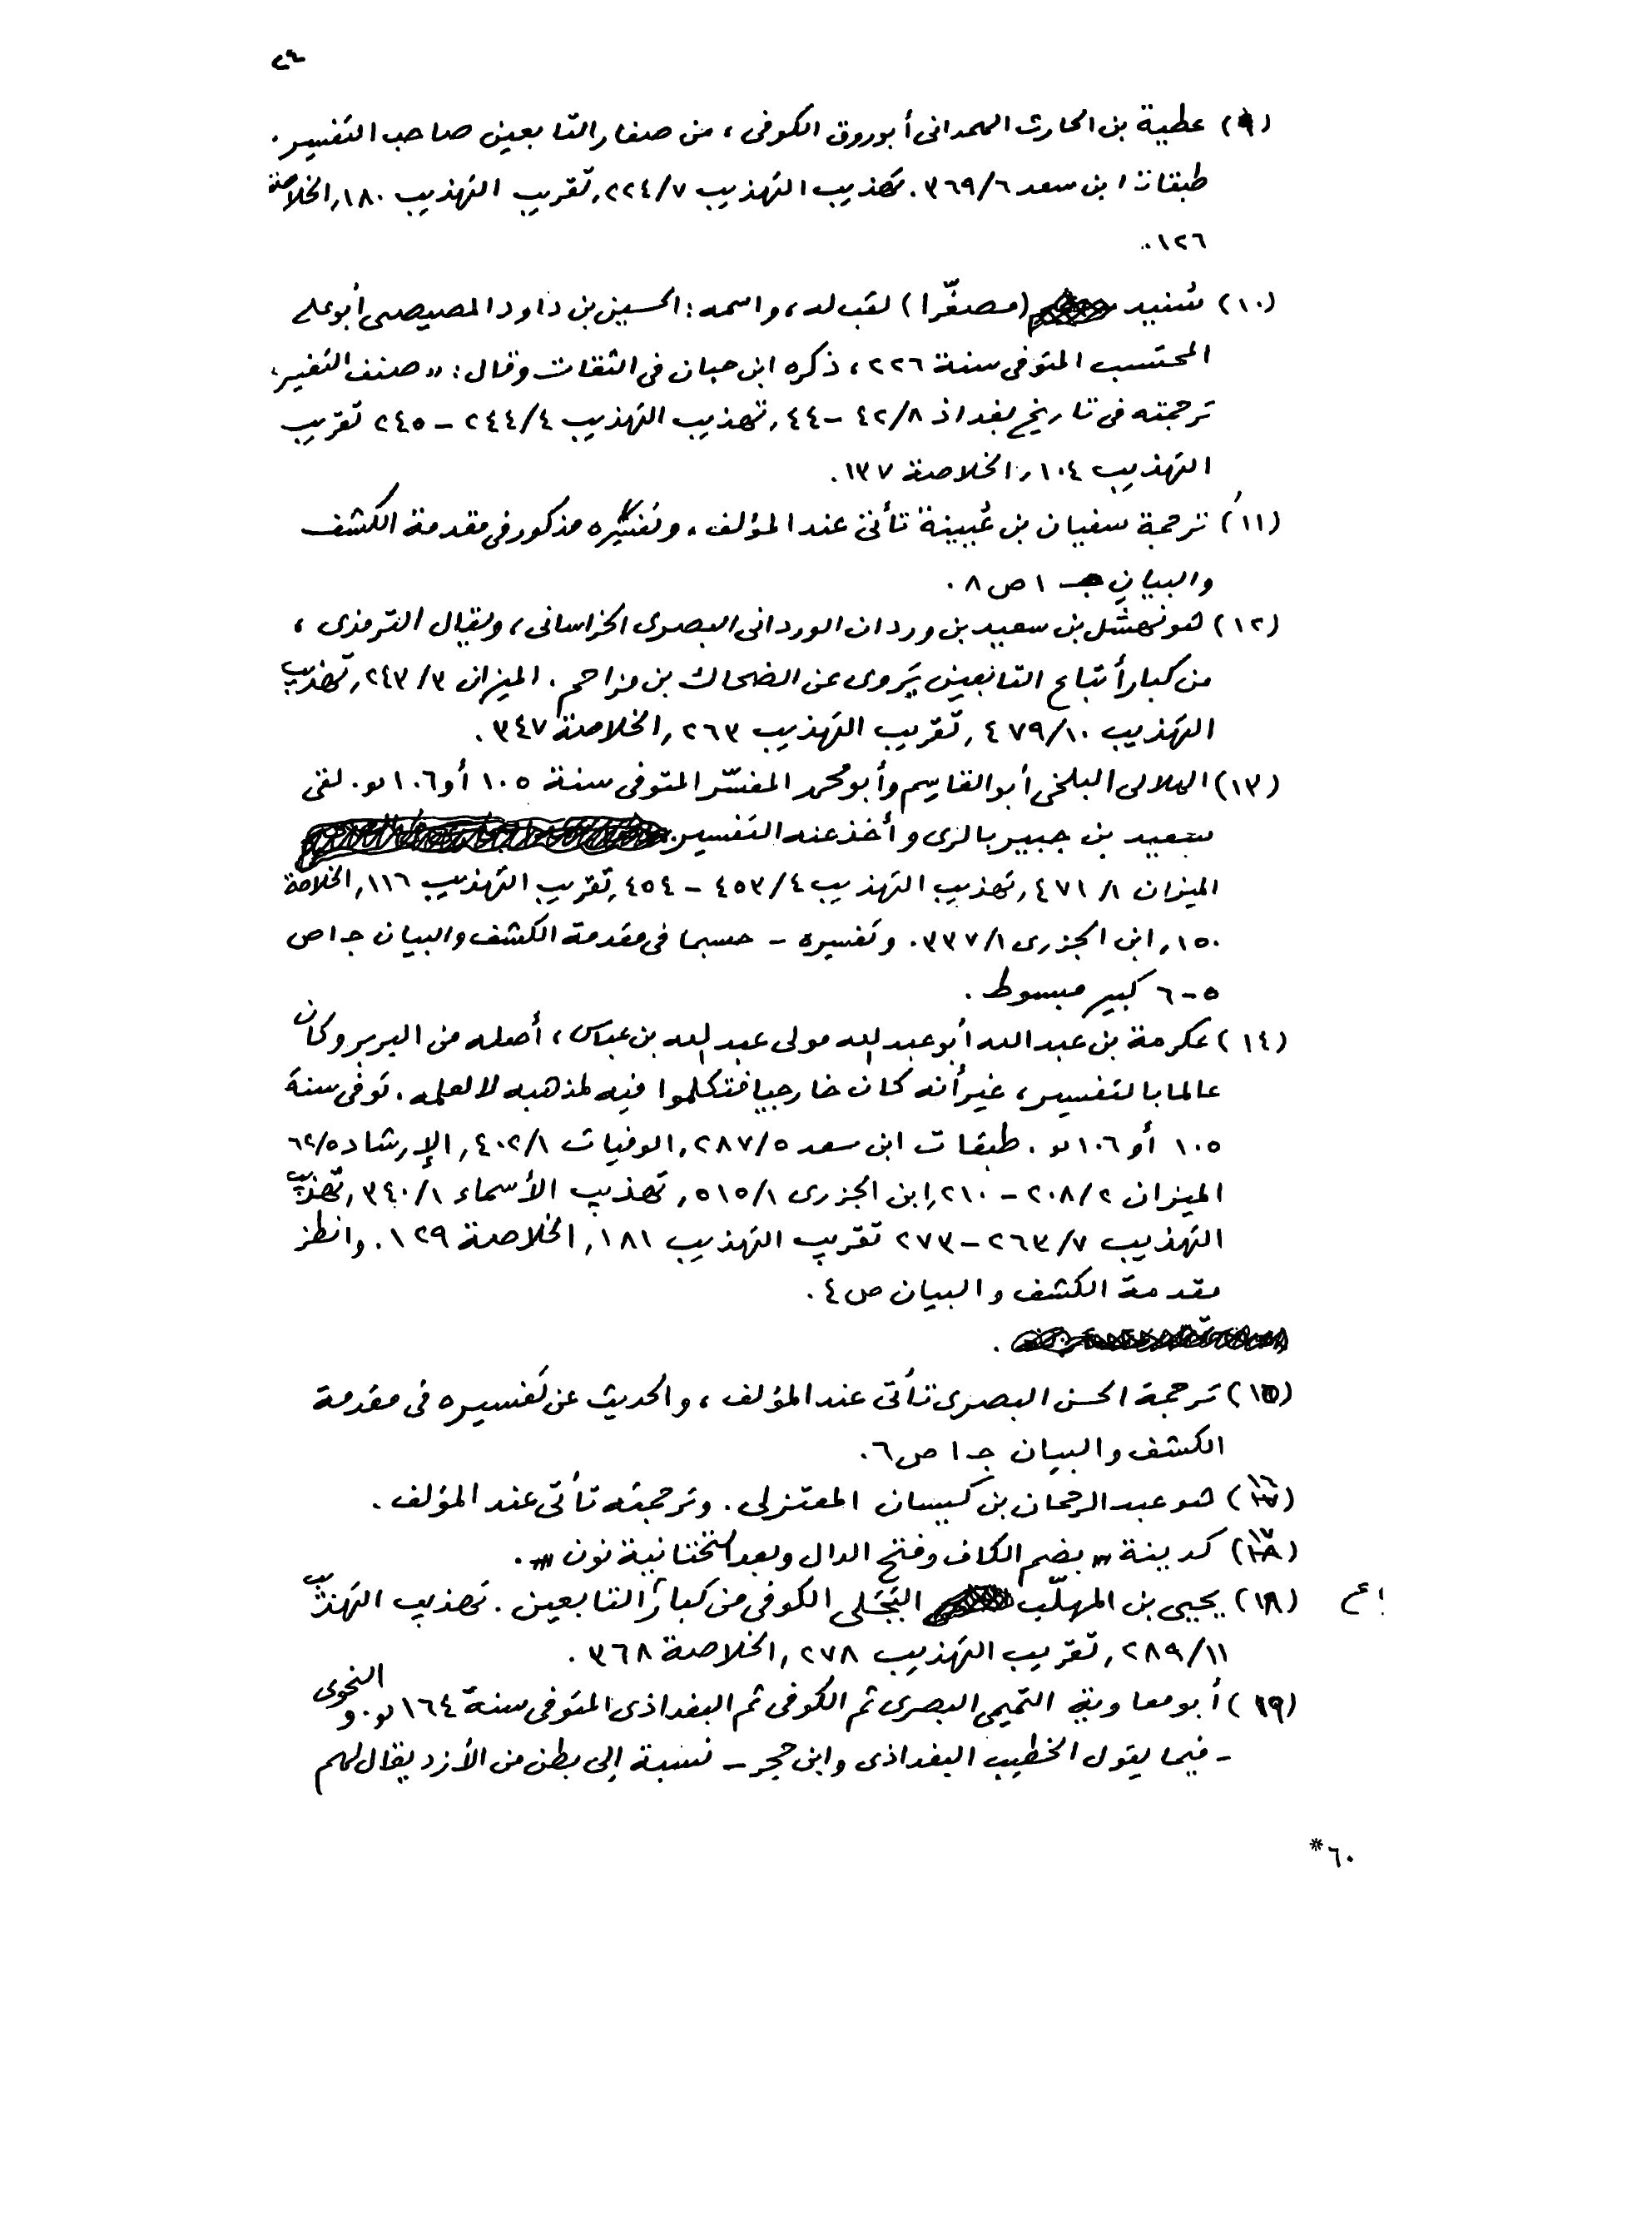 ٢٤
(٩) عطية بن الحارث الهمدانى أبوروق الكوفى، من صغار التابعين صاحب التفسير.
طبقات ابن سعد ٣٦٩/٦. تهذيب التهذيب ٢٢٤/٧, تقريب التهذيب ١٨٠, الخلاصة
١٢٦.
(١٠) سُنيد (مصغّرا) لقب له، واسمه: الحسين بن داود المصيصى أبوعلى
المحتسب المتوفى سنة ٢٢٦، ذكره ابن حبان فى الثقات وقال: "صنف التفسير"
ترجمته فى تاريخ بغداذ ٤٢/٨ - ٤٤, تهذيب التهذيب ٢٤٤/٤ - ٢٤٥ تقريب
التهذيب ١٠٤, الخلاصة ١٣٧.
(١١) ترجمة سفيان بن عُيينة تأتى عند المؤلف، وتفسيره مذكور فى مقدمة الكشف
والبيان جـ ١ ص ٨.
(١٢) هو نهشل بن سعيد بن وردان الوردانى البصرى الخراسانى، ويقال الترمذى،
من كبار أتباع التابعين يَروى عن الضحاك بن مزاحم. الميزان ٢٤٣/٣, تهذيب
التهذيب ٤٧٩/١٠, تقريب التهذيب ٢٦٣, الخلاصة ٣٤٧.
(١٣) الهلالى البلخى أبوالقاسم وأبومحمد المفسّر المتوفى سنة ١٠٥ أو ١٠٦ هـ. لقى
سعيد بن جبير بالرى وأخذ عنه التفسير.
الميزان ٤٧١/١, تهذيب التهذيب ٤٥٣/٤ - ٤٥٤, تقريب التهذيب ١١٦, الخلاصة
١٥٠, ابن الجزرى ٣٣٧/١. وتفسيره - حسبما فى مقدمة الكشف والبيان جـ ١ ص
٥-٦ كبير مبسوط.
(١٤) عكرمة بن عبد الله أبو عبد الله مولى عبد الله بن عباس، أصله من البربر وكان
عالما بالتفسير، غير أنه كان خارجيا فتكلموا فيه لمذهبه لا لعلمه. توفى سنة
١٠٥ أو ١٠٦ هـ. طبقات ابن سعد ٢٨٧/٥, الوفيات ٤٠٢/١, الإرشاد ٦٢/٥
الميزان ٢٠٨/٢ - ٢١٠, ابن الجزرى ٥١٥/١, تهذيب الأسماء ٣٤٠/١, تهذيب
التهذيب ٢٦٣/٧ - ٢٧٣ تقريب التهذيب ١٨١, الخلاصة ١٢٩. وانظر
مقدمة الكشف والبيان ص ٤.
(١٥) ترجمة الحسن البصرى تأتى عند المؤلف، والحديث عن تفسيره فى مقدمة
الكشف والبيان جـ ١ ص ٦.
(١٦) هو عبد الرحمان بن كيسان المعتزلى. وترجمته تأتى عند المؤلف.
(١٧) كدينة "بضم الكاف وفتح الدال وبعد التحتانية نون".
(١٨) يحيى بن المهلّب البَجَلى الكوفى من كبار التابعين. تهذيب التهذيب
٢٨٩/١١, تقريب التهذيب ٢٧٨, الخلاصة ٣٦٨.
(١٩) أبو معاوية التميمى البصرى ثم الكوفى ثم البغداذى المتوفى سنة ١٦٤ هـ. والنحوى
- فيما يقول الخطيب البغداذى وابن حجر - نسبة إلى بطن من الأزد يقال لهم
*٦٠